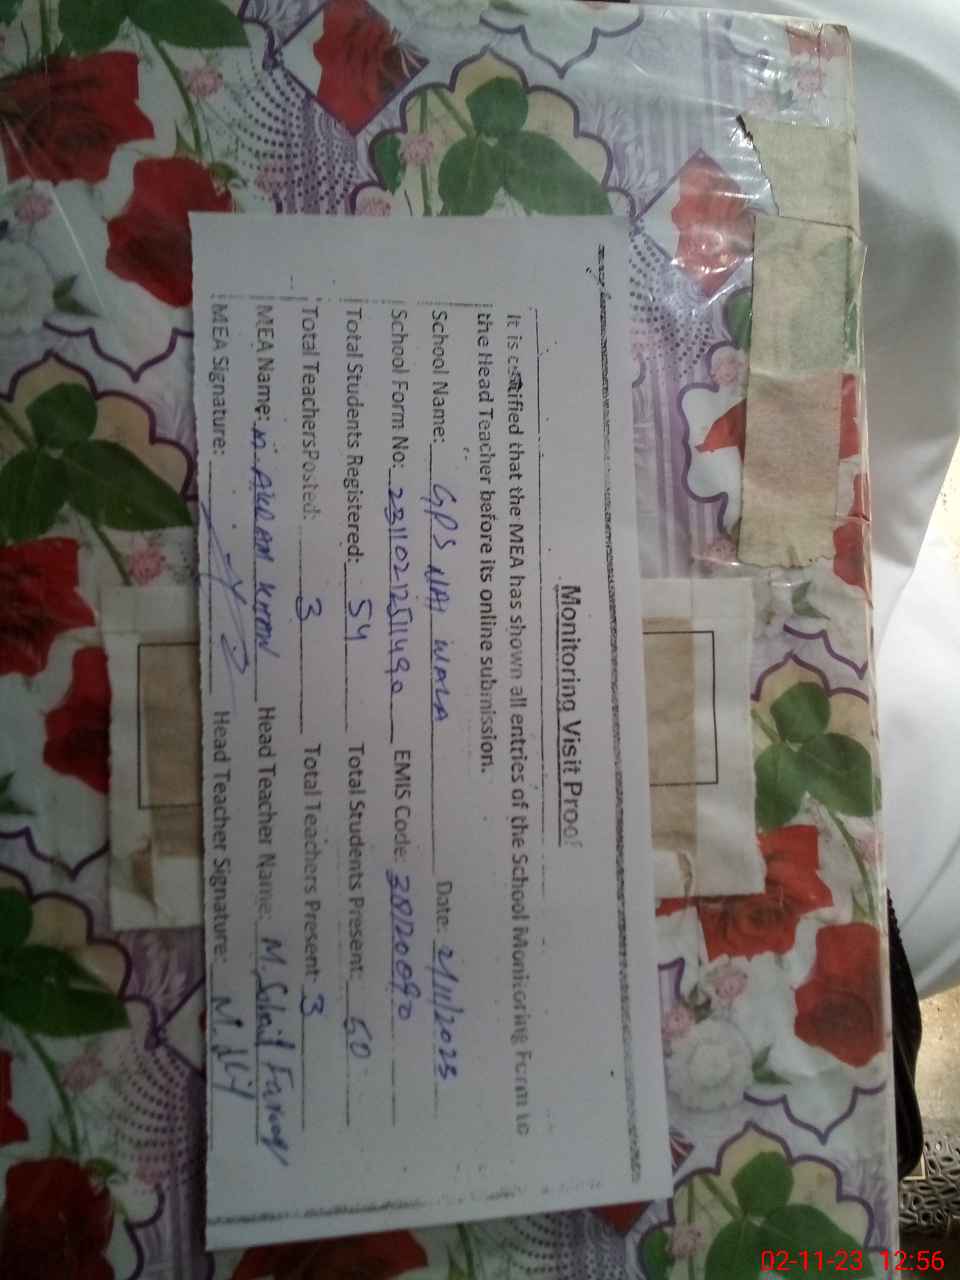 Monitoring Visit Proof
It is certified that the MEA has shown all entries of the School Monitoring Form to
the Head Teacher before its online submission.
School Name: GPS NAI WALA Date: 2/11/2023
School Form No: 23110212511490 EMIS Code:
Total Students Registered: 54 Total Students Present: 50
Total Teachers Posted: 3 Total Teachers Present: 3
MEA Name: Head Teacher Name: M.
MEA Signature: Head Teacher Signature:
02-11-23 12:56